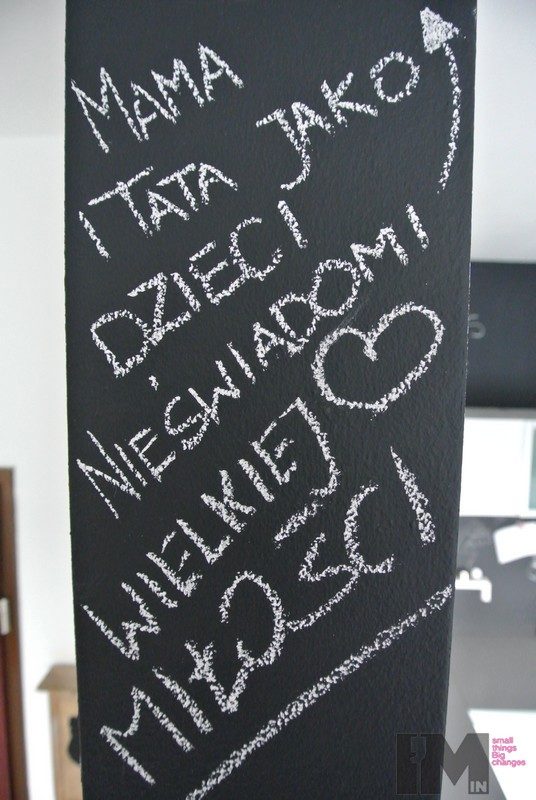 MAMA
I TATA JAKO
DZIECI
NIEŚWIADOMI
WIELKIEJ
MIŁOŚCI
I'M IN
small
things
Big
changes